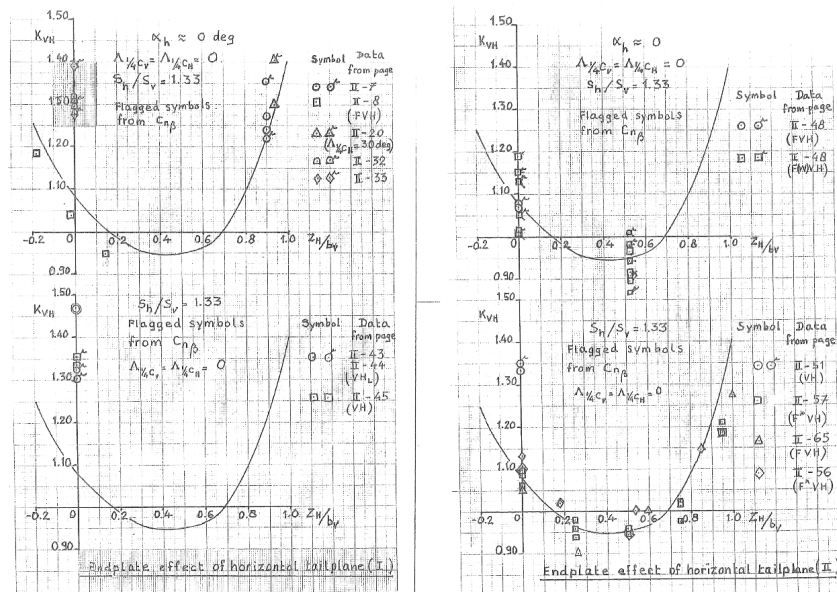 K_VH
1.50
1.40
1.30
1.20
1.10
0.90
-0.2
0
0.2
0.4
0.6
0.8
1.0
Z_H/b_V
α_h ≈ 0 deg
Λ_¼c_V = Λ_¼c_H = 0
S_h/S_v = 1.33
Flagged symbols
from C_nβ
Symbol Data
from page
II-7
II-8
(FVH)
II-20
(Λ_¼c_H = 30deg)
II-32
II-33
K_VH
1.50
1.40
1.30
1.20
1.10
0.90
-0.2
0
0.2
0.4
0.6
0.8
1.0
Z_H/b_V
S_h/S_v = 1.33
Flagged symbols
from C_nβ
Λ_¼c_V = Λ_¼c_H = 0
Symbol Data
from page
II-43
II-44
(VH_L)
II-45
(VH)
Endplate effect of horizontal tailplane (I)
K_VH
1.50
1.40
1.30
1.20
1.10
0.90
-0.2
0
0.2
0.4
0.6
0.8
1.0
Z_H/b_V
α_h ≈ 0
Λ_¼c_V = Λ_¼c_H = 0
S_h/S_v = 1.33
Flagged symbols
from C_nβ
Symbol Data
from page
II-48
(FVH)
II-48
(F(W)VH)
K_VH
1.50
1.40
1.30
1.20
1.10
0.90
-0.2
0
0.2
0.4
0.6
0.8
1.0
Z_H/b_V
S_h/S_v = 1.33
Flagged symbols
from C_nβ
Λ_¼c_V = Λ_¼c_H = 0
Symbol Data
from page
II-51
(VH)
II-57
(F*VH)
II-65
(FVH)
II-56
(F*VH)
Endplate effect of horizontal tailplane (II